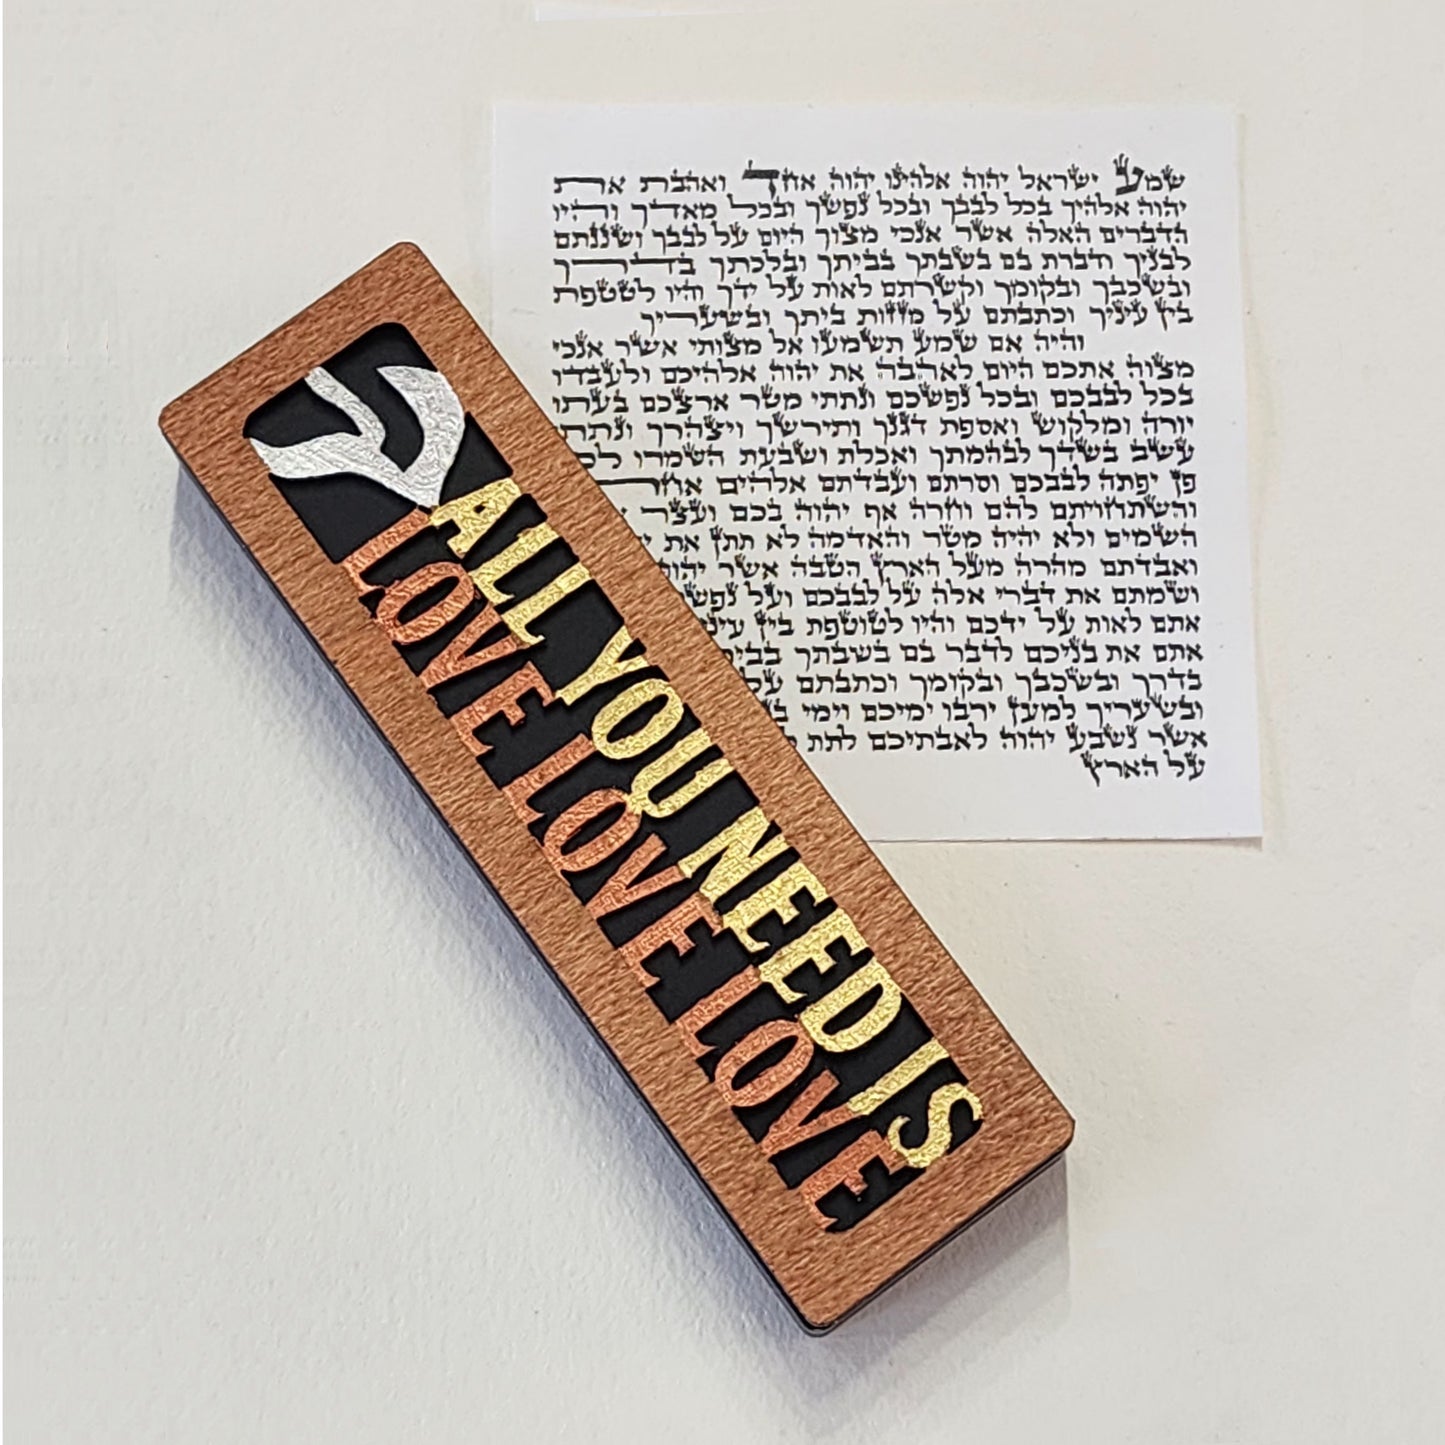 שמע ישראל יהוה אלהינו יהוה אחד ואהבת את
יהוה אלהיך בכל לבבך ובכל נפשך ובכל מאדך והיו
הדברים האלה אשר אנכי מצוך היום על לבבך ושננתם
לבניך ודברת בם בשבתך בביתך ובלכתך בדרך
ובשכבך ובקומך וקשרתם לאות על ידך והיו לטטפת
בין עיניך וכתבתם על מזזות ביתך ובשעריך
והיה אם שמע תשמעו אל מצותי אשר אנכי
מצוה אתכם היום לאהבה את יהוה אלהיכם ולעבדו
בכל לבבכם ובכל נפשכם ונתתי מטר ארצכם בעתו
יורה ומלקוש ואספת דגנך ותירשך ויצהרך ונתתי
עשב בשדך לבהמתך ואכלת ושבעת השמרו
פן יפתה לבבכם וסרתם ועבדתם אלהים
והשתחויתם להם וחרה אף יהוה בכם ועצר
השמים ולא יהיה מטר והאדמה לא תתן את
ואבדתם מהרה מעל הארץ הטבה אשר
ושמתם את דברי אלה על לבבכם ועל
אתם לאות על ידכם והיו לטוטפת בין
אתם את בניכם לדבר בם בשבתך
בדרך ובשכבך ובקומך וכתבתם
ובשעריך למען ירבו ימיכם וימי
אשר נשבע יהוה לאבתיכם לתת
על הארץ
ש
ALL YOU NEED IS
LOVE LOVE LOVE